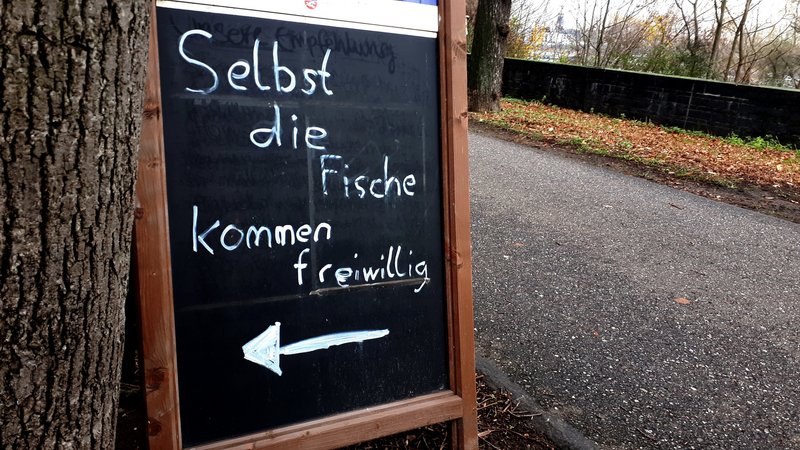 Unsere Empfehlung
Selbst
die
Fische
kommen
freiwillig